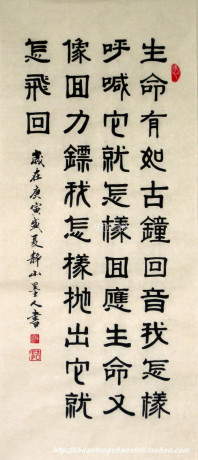 生命有如古鐘回音我怎樣
呼喊它就怎樣回應生命又
像回力鏢我怎樣拋出它就
怎飛回
歲在庚寅盛夏靜山墨人書